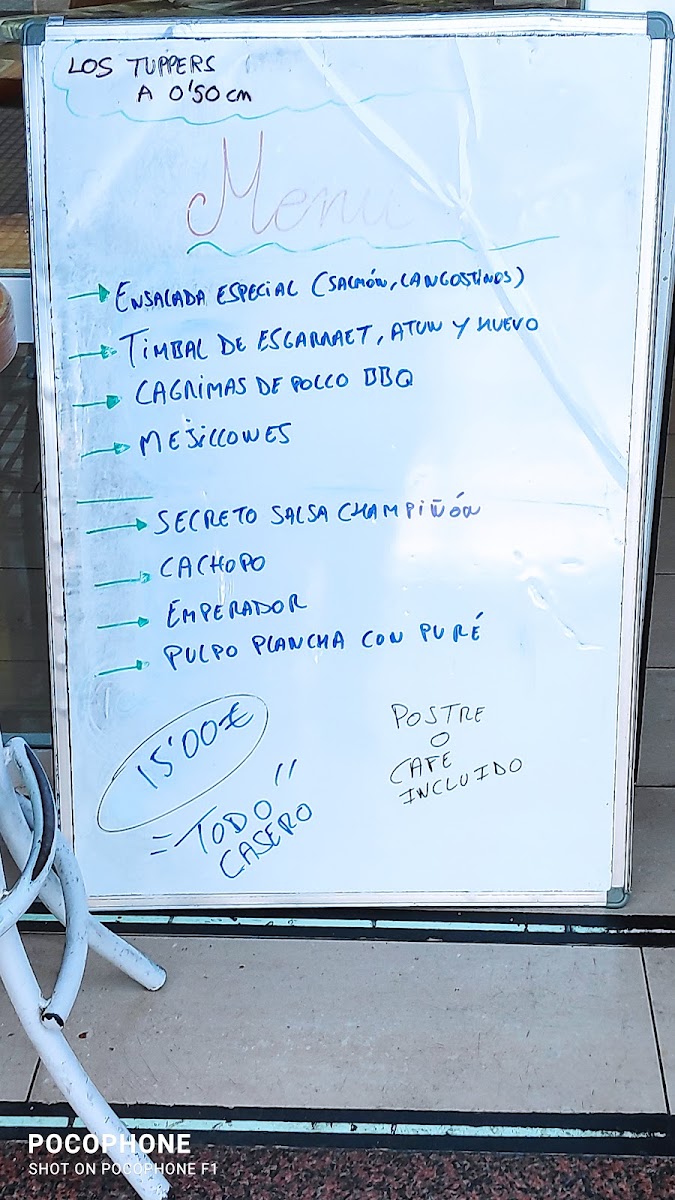 LOS TUPPERS
A 0'50 cm
Menu
ENSALADA ESPECIAL (SALMÓN, LANGOSTINOS)
TIMBAL DE ESGARRAET, ATUN Y HUEVO
LAGRIMAS DE POLLO BBQ
MEJILLONES
SECRETO SALSA CHAMPIÑÓN
CACHOPO
EMPERADOR
PULPO PLANCHA CON PURÉ
15'00€
POSTRE
O
CAFE
INCLUIDO
= TODO "
CASERO
POCOPHONE
SHOT ON POCOPHONE F1